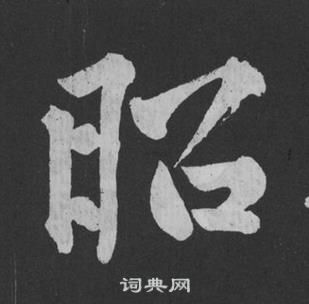 昭
词典网